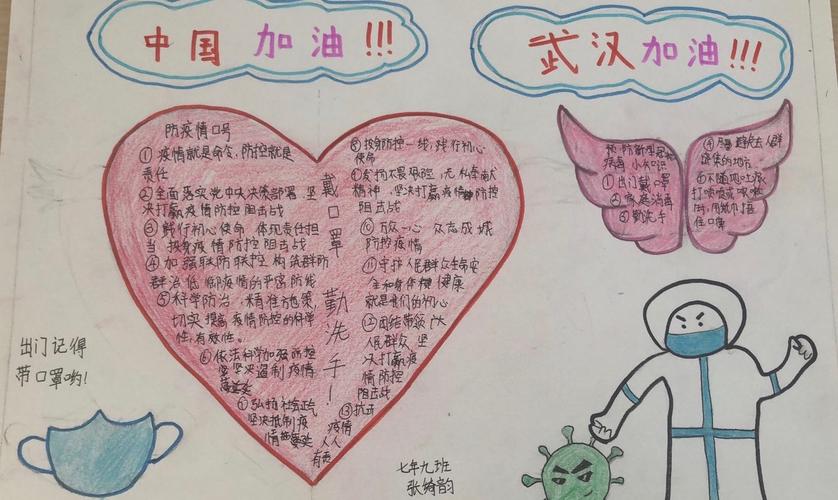 中国 加油!!!
武汉加油!!!
防疫情口号
①疫情就是命令,防控就是
责任
②全面落实党中央决策部署,坚
决打赢疫情防控阻击战
③践行初心使命 体现责任担
当 投身疫情防控阻击战
④加强联防联控 构筑群防
群治 抵御疫情的严密防线
⑤科学防治,精准施策,
切实提高疫情防控的科学
性,有效性。
⑥依法科学加强防控
坚决遏制疫情
蔓延
⑦弘扬社会正气
坚决抵制疫
情
戴口罩 勤洗手!
⑧投身防控一线,践行初心
使命
⑨发扬不畏艰险,无私奉献
精神,坚决打赢疫情防控
阻击战
⑩万众一心 众志成城
防控疫情
⑪守护人民群众生命安
全和身体健康
就是我们的初心
⑫团结带领广大
人民群众,坚
决打赢疫
情防控
阻击战
⑬抗击
疫情
人人
有责
预防新型冠状
病毒小知识
①出门戴口罩
②家庭消毒
③勤洗手
④避免去人群
密集的地方
⑤不随地吐痰
打喷嚏或咳嗽
时,用纸巾捂
住口鼻
出门记得
带口罩哟!
七年九班
张绮韵